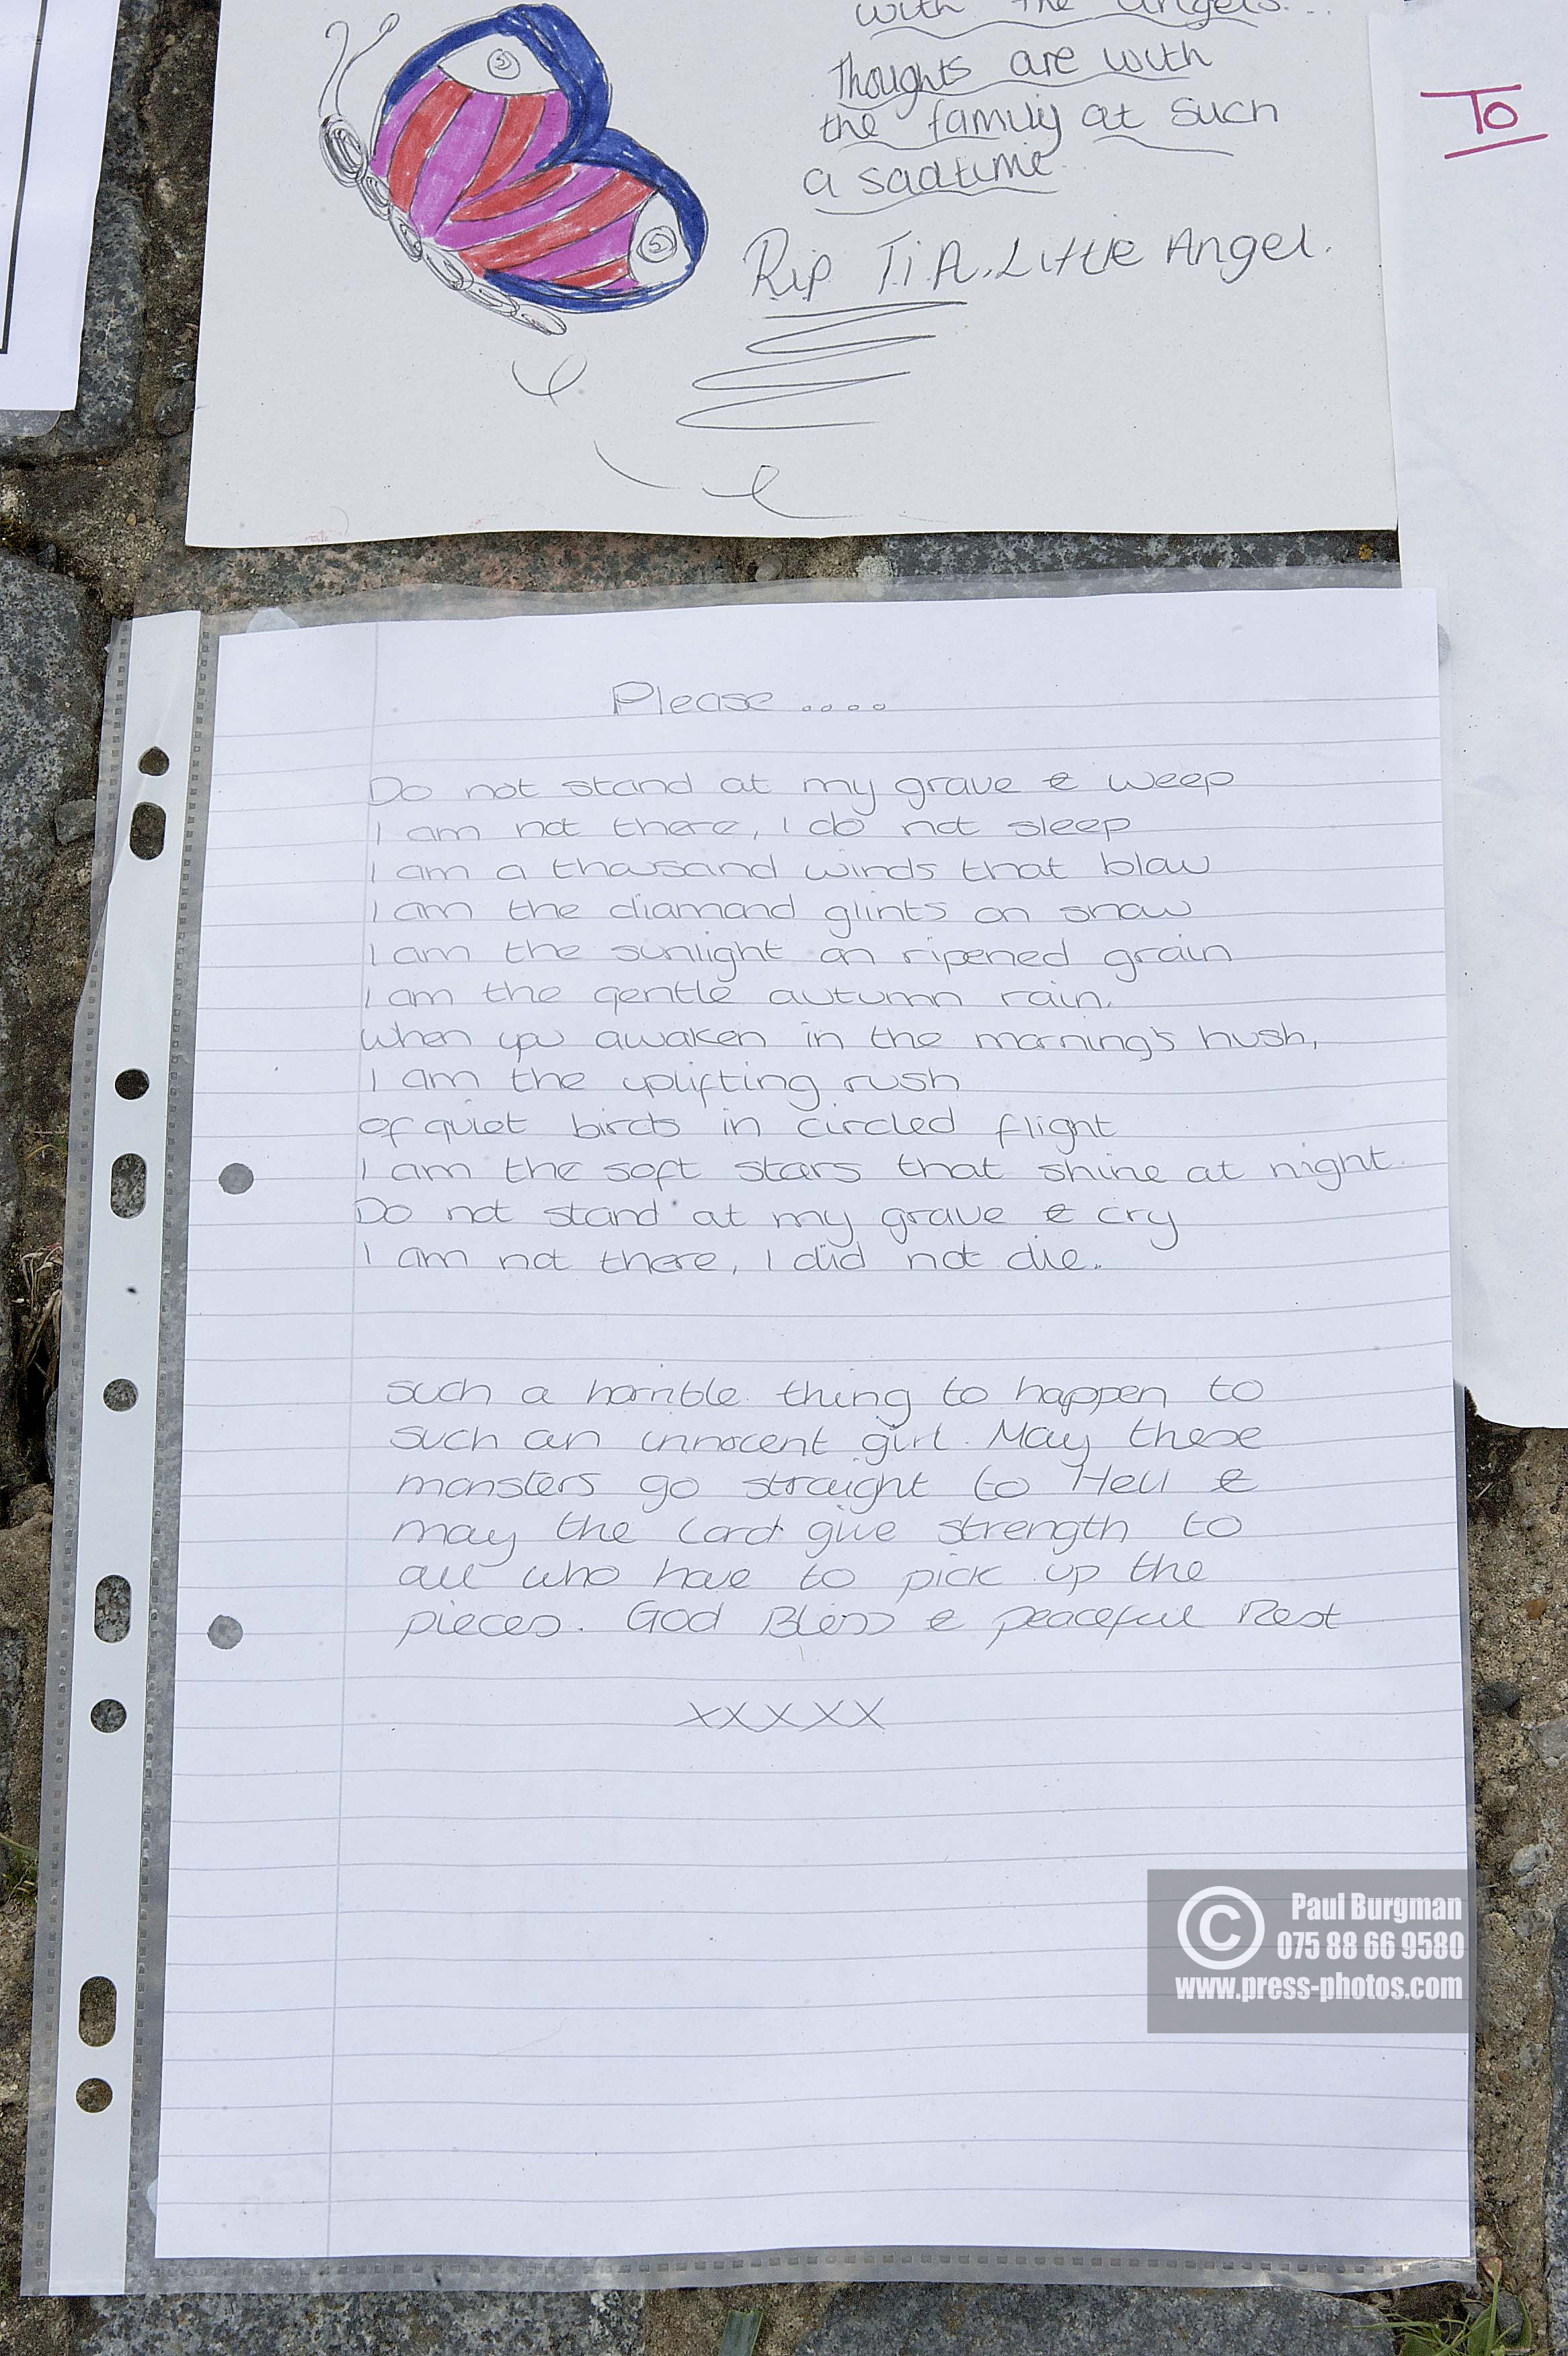 with the angels...
Thoughts are with
the family at such
a sad time
Rip TiA. Little Angel.
To
Please ....
Do not stand at my grave & weep
I am not there, I do not sleep
I am a thousand winds that blow
I am the diamond glints on snow
I am the sunlight on ripened grain
I am the gentle autumn rain.
When you awaken in the morning's hush,
I am the uplifting rush
of quiet birds in circled flight
I am the soft stars that shine at night.
Do not stand at my grave & cry
I am not there, I did not die.
Such a horrible thing to happen to
such an innocent girl. May these
monsters go straight to Hell &
may the Lord give strength to
all who have to pick up the
pieces. God Bless & peaceful Rest
xxxxx
© Paul Burgman
075 88 66 9580
www.press-photos.com